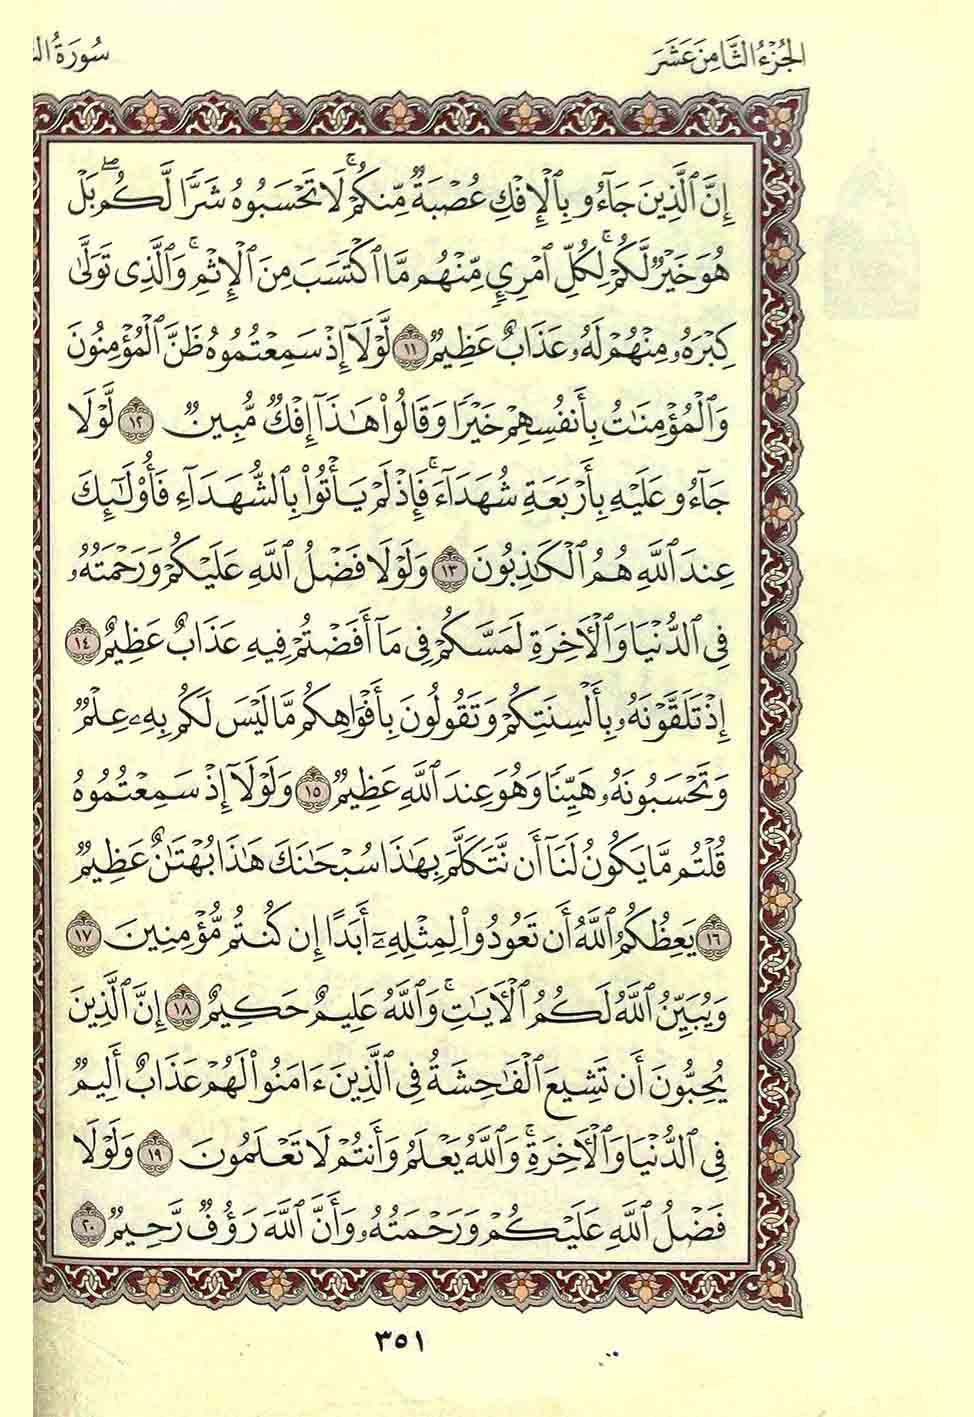 الجُزْءُ الثَّامِنَ عَشَرَ
سُورَةُ
إِنَّ ٱلَّذِينَ جَآءُو بِٱلْإِفْكِ عُصْبَةٌ مِّنكُمْ ۚ لَا تَحْسَبُوهُ شَرًّا لَّكُم ۖ بَلْ
هُوَ خَيْرٌ لَّكُمْ ۚ لِكُلِّ ٱمْرِئٍ مِّنْهُم مَّا ٱكْتَسَبَ مِنَ ٱلْإِثْمِ ۚ وَٱلَّذِى تَوَلَّىٰ
كِبْرَهُۥ مِنْهُمْ لَهُۥ عَذَابٌ عَظِيمٌ ١١ لَّوْلَآ إِذْ سَمِعْتُمُوهُ ظَنَّ ٱلْمُؤْمِنُونَ
وَٱلْمُؤْمِنَٰتُ بِأَنفُسِهِمْ خَيْرًا وَقَالُوا۟ هَٰذَآ إِفْكٌ مُّبِينٌ ١٢ لَّوْلَا
جَآءُو عَلَيْهِ بِأَرْبَعَةِ شُهَدَآءَ ۚ فَإِذْ لَمْ يَأْتُوا۟ بِٱلشُّهَدَآءِ فَأُو۟لَٰٓئِكَ
عِندَ ٱللَّهِ هُمُ ٱلْكَٰذِبُونَ ١٣ وَلَوْلَا فَضْلُ ٱللَّهِ عَلَيْكُمْ وَرَحْمَتُهُۥ
فِى ٱلدُّنْيَا وَٱلْءَاخِرَةِ لَمَسَّكُمْ فِى مَآ أَفَضْتُمْ فِيهِ عَذَابٌ عَظِيمٌ ١٤
إِذْ تَلَقَّوْنَهُۥ بِأَلْسِنَتِكُمْ وَتَقُولُونَ بِأَفْوَاهِكُم مَّا لَيْسَ لَكُم بِهِۦ عِلْمٌ
وَتَحْسَبُونَهُۥ هَيِّنًا وَهُوَ عِندَ ٱللَّهِ عَظِيمٌ ١٥ وَلَوْلَآ إِذْ سَمِعْتُمُوهُ
قُلْتُم مَّا يَكُونُ لَنَآ أَن نَّتَكَلَّمَ بِهَٰذَا سُبْحَٰنَكَ هَٰذَا بُهْتَٰنٌ عَظِيمٌ
١٦ يَعِظُكُمُ ٱللَّهُ أَن تَعُودُوا۟ لِمِثْلِهِۦٓ أَبَدًا إِن كُنتُم مُّؤْمِنِينَ ١٧
وَيُبَيِّنُ ٱللَّهُ لَكُمُ ٱلْءَايَٰتِ ۚ وَٱللَّهُ عَلِيمٌ حَكِيمٌ ١٨ إِنَّ ٱلَّذِينَ
يُحِبُّونَ أَن تَشِيعَ ٱلْفَٰحِشَةُ فِى ٱلَّذِينَ ءَامَنُوا۟ لَهُمْ عَذَابٌ أَلِيمٌ
فِى ٱلدُّنْيَا وَٱلْءَاخِرَةِ ۚ وَٱللَّهُ يَعْلَمُ وَأَنتُمْ لَا تَعْلَمُونَ ١٩ وَلَوْلَا
فَضْلُ ٱللَّهِ عَلَيْكُمْ وَرَحْمَتُهُۥ وَأَنَّ ٱللَّهَ رَءُوفٌ رَّحِيمٌ ٢٠
٣٥١